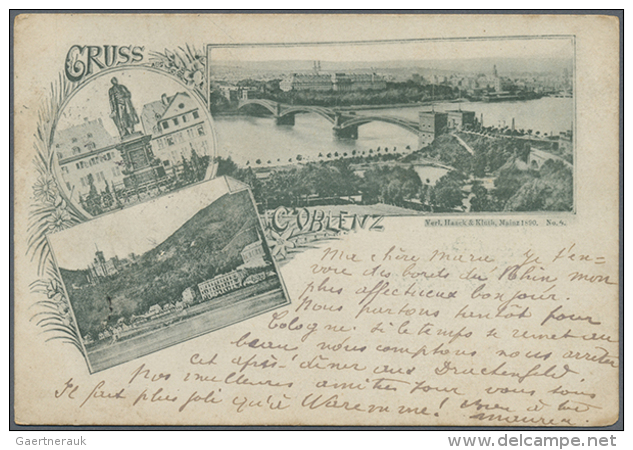 GRUSS
COBLENZ
Verl. Hauck & Kluth, Mainz 1890. No. 8.
Ma chère Marie. Je t'en-
voie des bords du Rhin mon
plus affectueux bonjour.
Nous partons bientôt pour
Cologne. Si le temps se remet au
beau nous comptons nous arrêter
cet après-dîner aux
Nos meilleures amitiés pour vous tous
Il fait plus joli qu'à Waremme! à toi
Gaertnerauk
delcampe.net